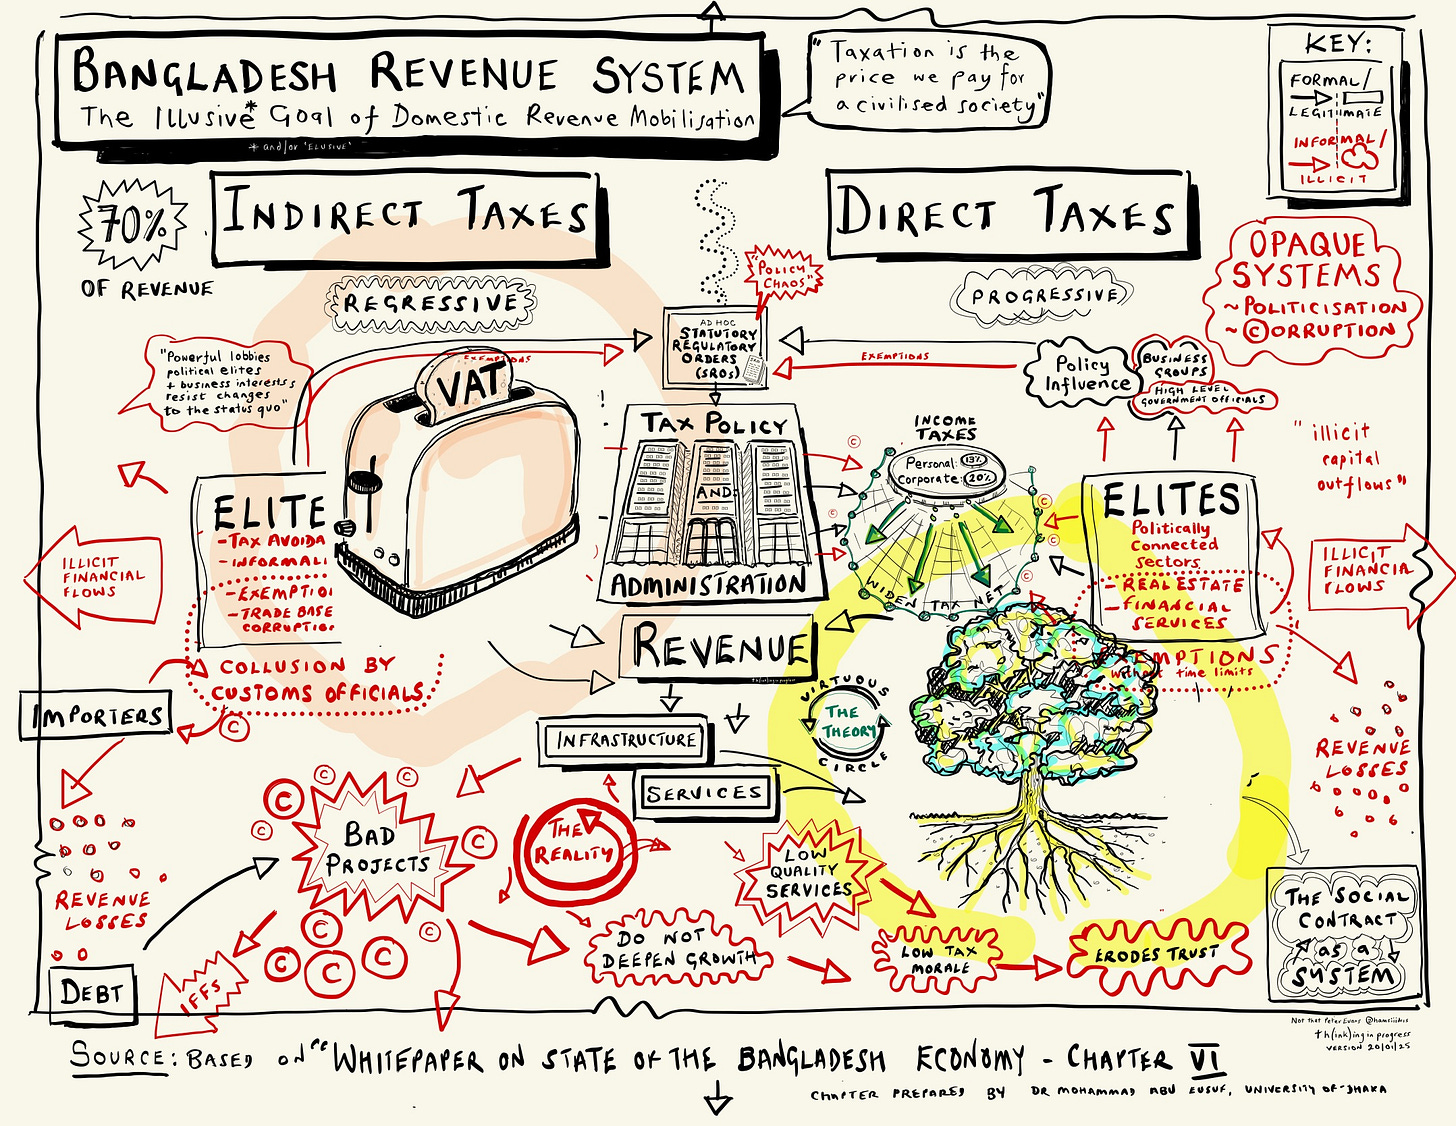 BANGLADESH REVENUE SYSTEM
The Illusive* Goal of Domestic Revenue Mobilisation
* and/or 'ELUSIVE'
"Taxation is the
price we pay for
a civilised society"
KEY:
FORMAL/
LEGITIMATE
INFORMAL/
ILLICIT
70%
OF REVENUE
INDIRECT TAXES
DIRECT TAXES
REGRESSIVE
PROGRESSIVE
"POLICY
CHAOS"
OPAQUE
SYSTEMS
~POLITICISATION
~©ORRUPTION
"Powerful lobbies
political elites
+ business interests
resist changes
to the status quo"
EXEMPTIONS
AD HOC
STATUTORY
REGULATORY
ORDERS
(SROs)
EXEMPTIONS
Policy
Influence
BUSINESS
GROUPS
HIGH LEVEL
GOVERNMENT OFFICIALS
VAT
TAX POLICY
AND
ADMINISTRATION
INCOME
TAXES
Personal: 13%
Corporate: 20%
WIDEN TAX NET
"illicit
capital
outflows"
ELITE
-TAX AVOIDA
-INFORMALI
-EXEMPTIO
-TRADE BASE
CORRUPTIO
COLLUSION BY
CUSTOMS OFFICIALS
ELITES
Politically
Connected
Sectors
-REAL ESTATE
-FINANCIAL
SERVICES
EMPTIONS
without time limits
ILLICIT
FINANCIAL
FLOWS
ILLICIT
FINANCIAL
FLOWS
C
C
C
C
REVENUE
IMPORTERS
C
INFRASTRUCTURE
SERVICES
VIRTUOUS
THE
THEORY
CIRCLE
REVENUE
LOSSES
REVENUE
LOSSES
C
C
C
C
C
BAD
PROJECTS
THE
REALITY
LOW
QUALITY
SERVICES
C
C
C
C
C
DO NOT
DEEPEN GROWTH
LOW TAX
MORALE
ERODES TRUST
THE SOCIAL
CONTRACT
as a
SYSTEM
DEBT
IFFs
Not that Peter Evans @hamsiiibis
th(ink)ing in progress
VERSION 20/01/25
SOURCE: BASED ON "WHITEPAPER ON STATE OF THE BANGLADESH ECONOMY - CHAPTER VI
CHAPTER PREPARED BY DR MOHAMMAD ABU EUSUF, UNIVERSITY OF DHAKA